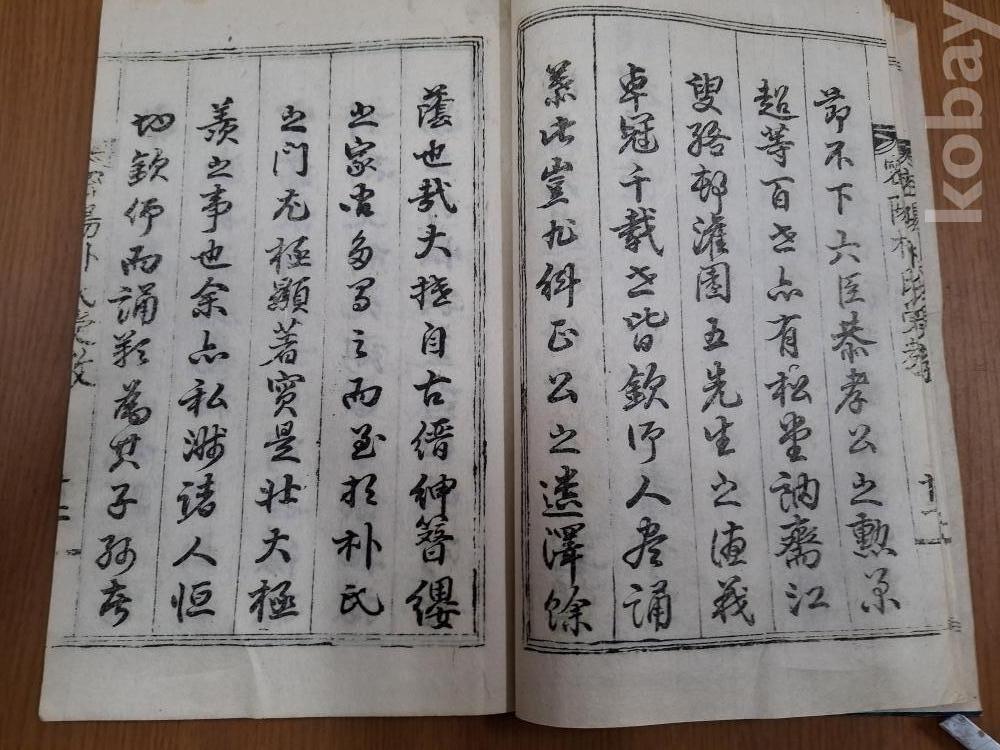 節不下六臣恭孝公之勲業
超等百世亦有松堂訥齋江
叟絡邨灌園五先生之德義
卓冠千載世皆欽仰人盡誦
慕此豈非糾正公之遺澤餘
蔭也哉大抵自古縉紳簪纓
之家古多有之而至於朴氏
之門尤極顯著實是壯大極
羨之事也余亦私淑諸人恒
切欽師而誦歎爲其子孫者
密陽朴氏
kobay